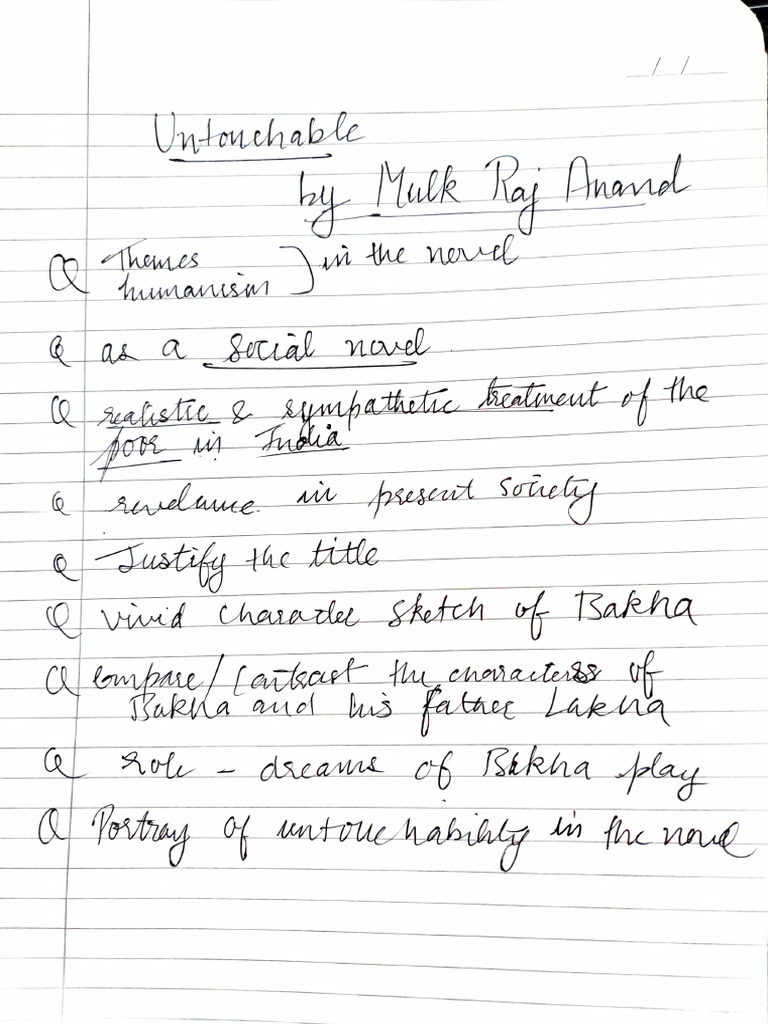 / /
Untouchable
by Mulk Raj Anand
Q Themes } in the novel
humanism
Q as a social novel
Q realistic & sympathetic treatment of the
poor in India
Q in present society
Q Justify the title
Q vivid character sketch of Bakha
Q Compare/Contrast the characters of
Bakha and his father Lakha
Q role - dreams of Bakha play
Q Portray of untouchability in the novel